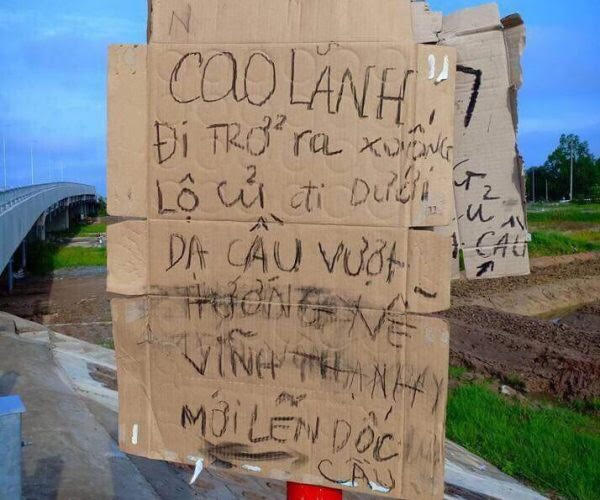 N
CAO LÃNH
Đi TRở ra xuống
LỘ CŨ đi DƯỚi
DẠ CẦU VƯỢt
HƯỚNG VỀ
VĨNH THẠNH
MỚi LÊN DỐC
CẦU
7
CẦU